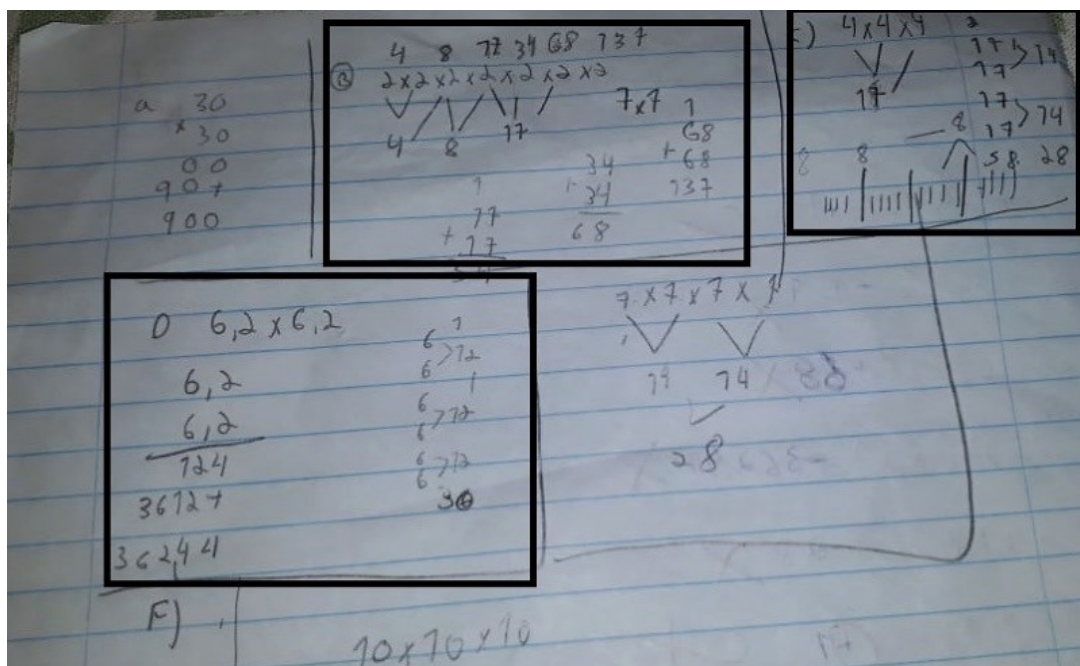 a 30
× 30
00
90+
900
4 8 17 34 68 137
B 2×2×2×2×2×2×2
4 8 17
7×7
1
17
+ 17
34
+ 34
68
1
68
+ 68
137
) 4×4×4
17
17
17 > 14
17
17 > 74
8
8 8
58 28
D 6,2×6,2
6,2
6,2
124
3612+
362,44
1
6
6 > 12
1
6
6 > 12
6
6 > 12
36
7×7×7×7
14 14
28
F)
10×10×10